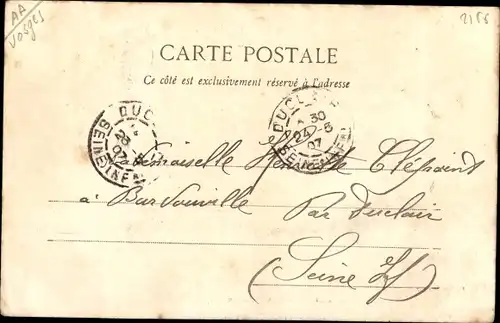 AA
Vosges
2166
CARTE POSTALE
Ce côté est exclusivement réservé à l'adresse
DUCL
30
24-5
07
SEINE INFRE
DUC
07
SEINE INF
Mademoiselle
à Bardouville Par Duclair
(Seine Inf)